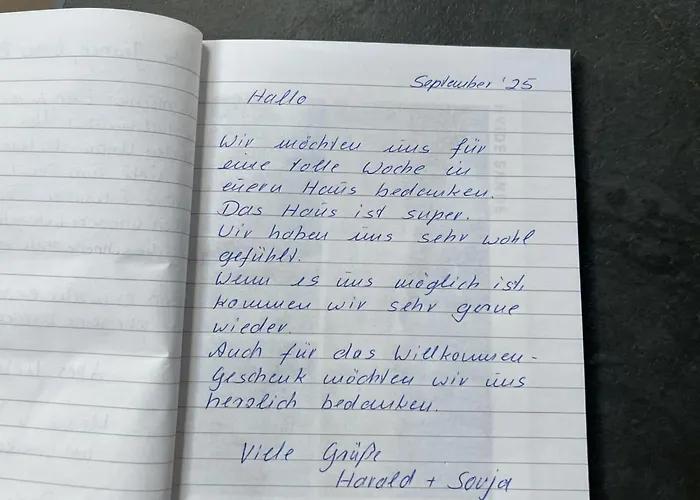 September '25
Hallo
Wir möchten uns für
eine tolle Woche in
euern Haus bedanken.
Das Haus ist super.
Wir haben uns sehr wohl
gefühlt.
Wenn es uns möglich ist,
kommen wir sehr gerne
wieder.
Auch für das Willkommen-
Geschenk möchten wir uns
herzlich bedanken.
Viele Grüße
Harald + Sonja